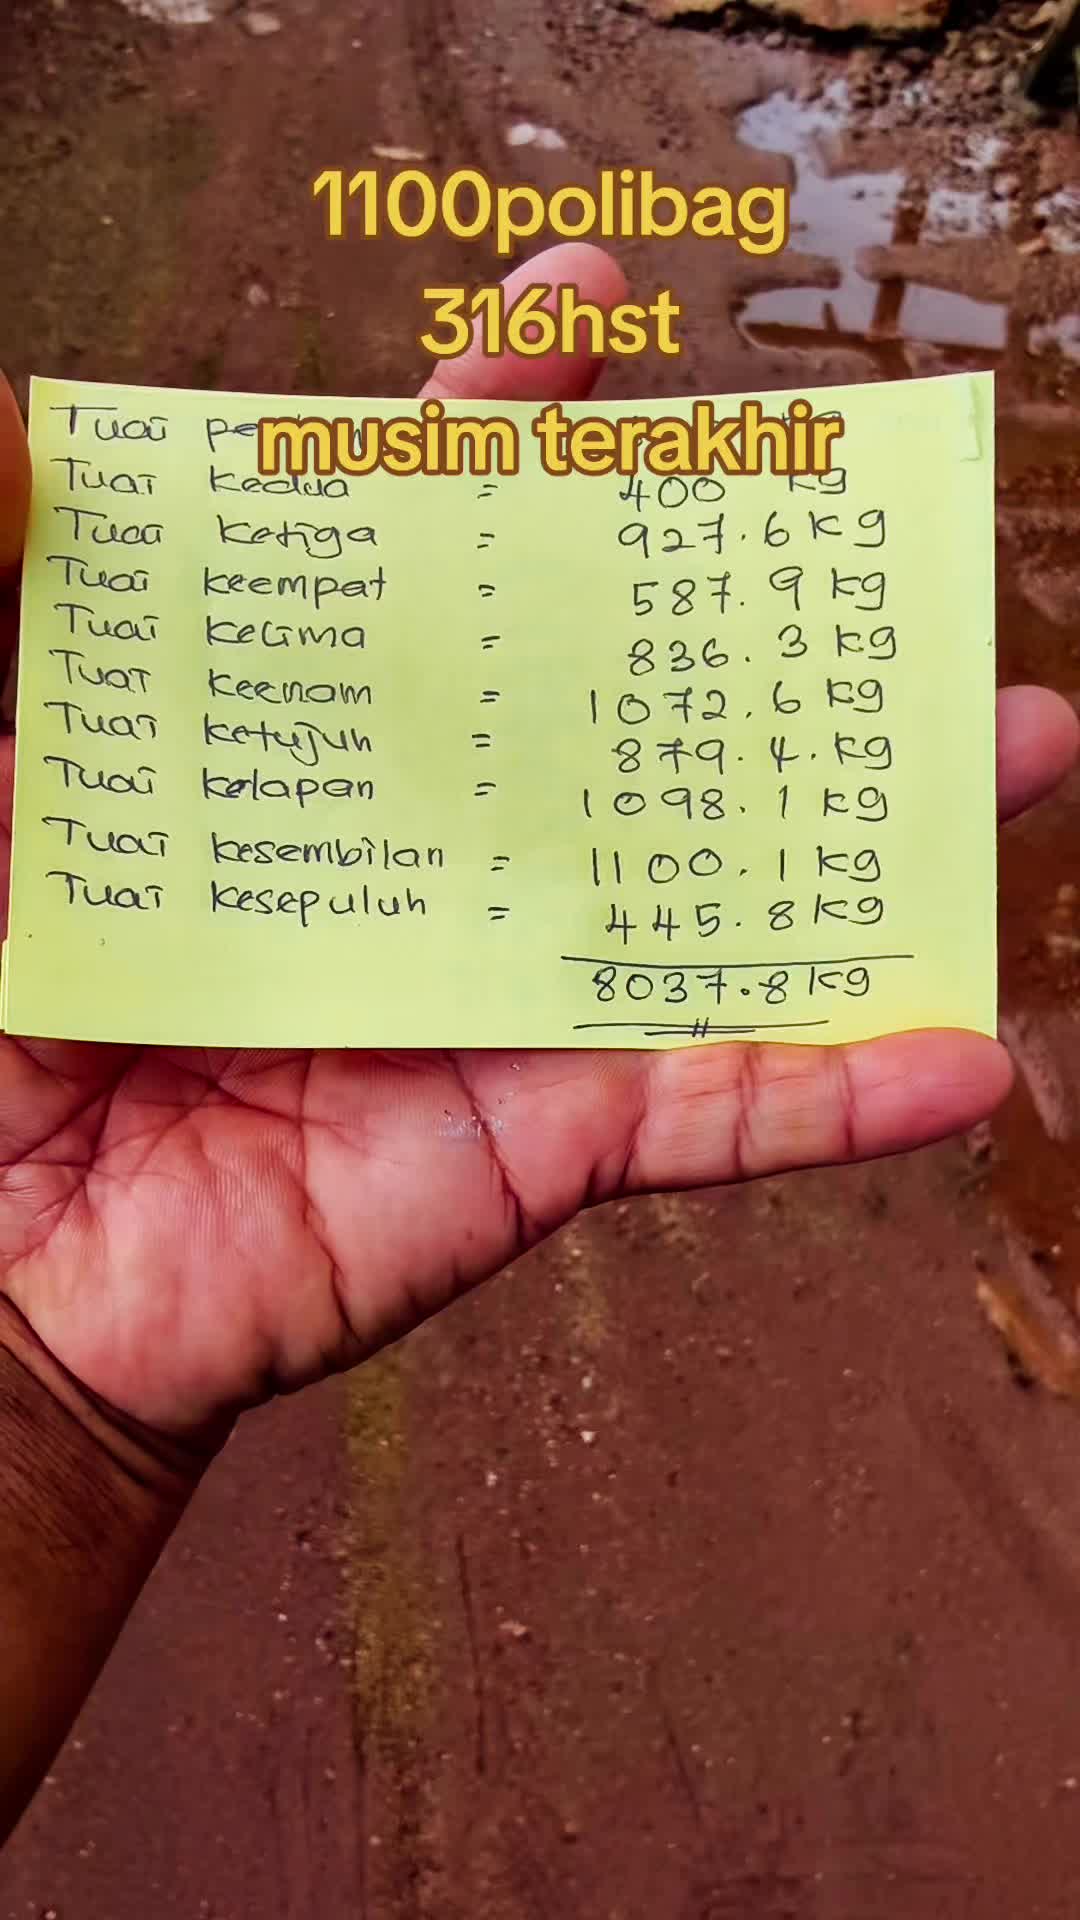 1100polibag
316hst
musim terakhir
Tuai
Tuai kedua = 400 kg
Tuai ketiga = 927.6 kg
Tuai keempat = 587.9 kg
Tuai kelima = 836.3 kg
Tuai keenam = 1072.6 kg
Tuai ketujuh = 879.4. kg
Tuai kelapan = 1098.1 kg
Tuai kesembilan = 1100.1 kg
Tuai kesepuluh = 445.8 kg
8037.8 kg